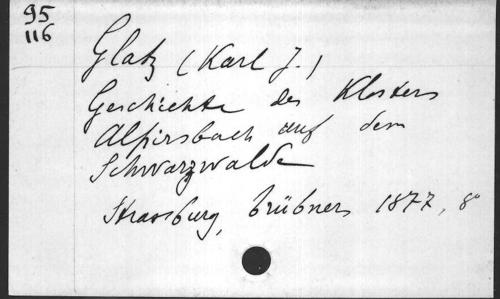 95
116
Glatz (Karl J.)
Geschichte des Klosters
Alpirsbach auf dem
Schwarzwalde
Strassburg, Trübners 1877, 8°